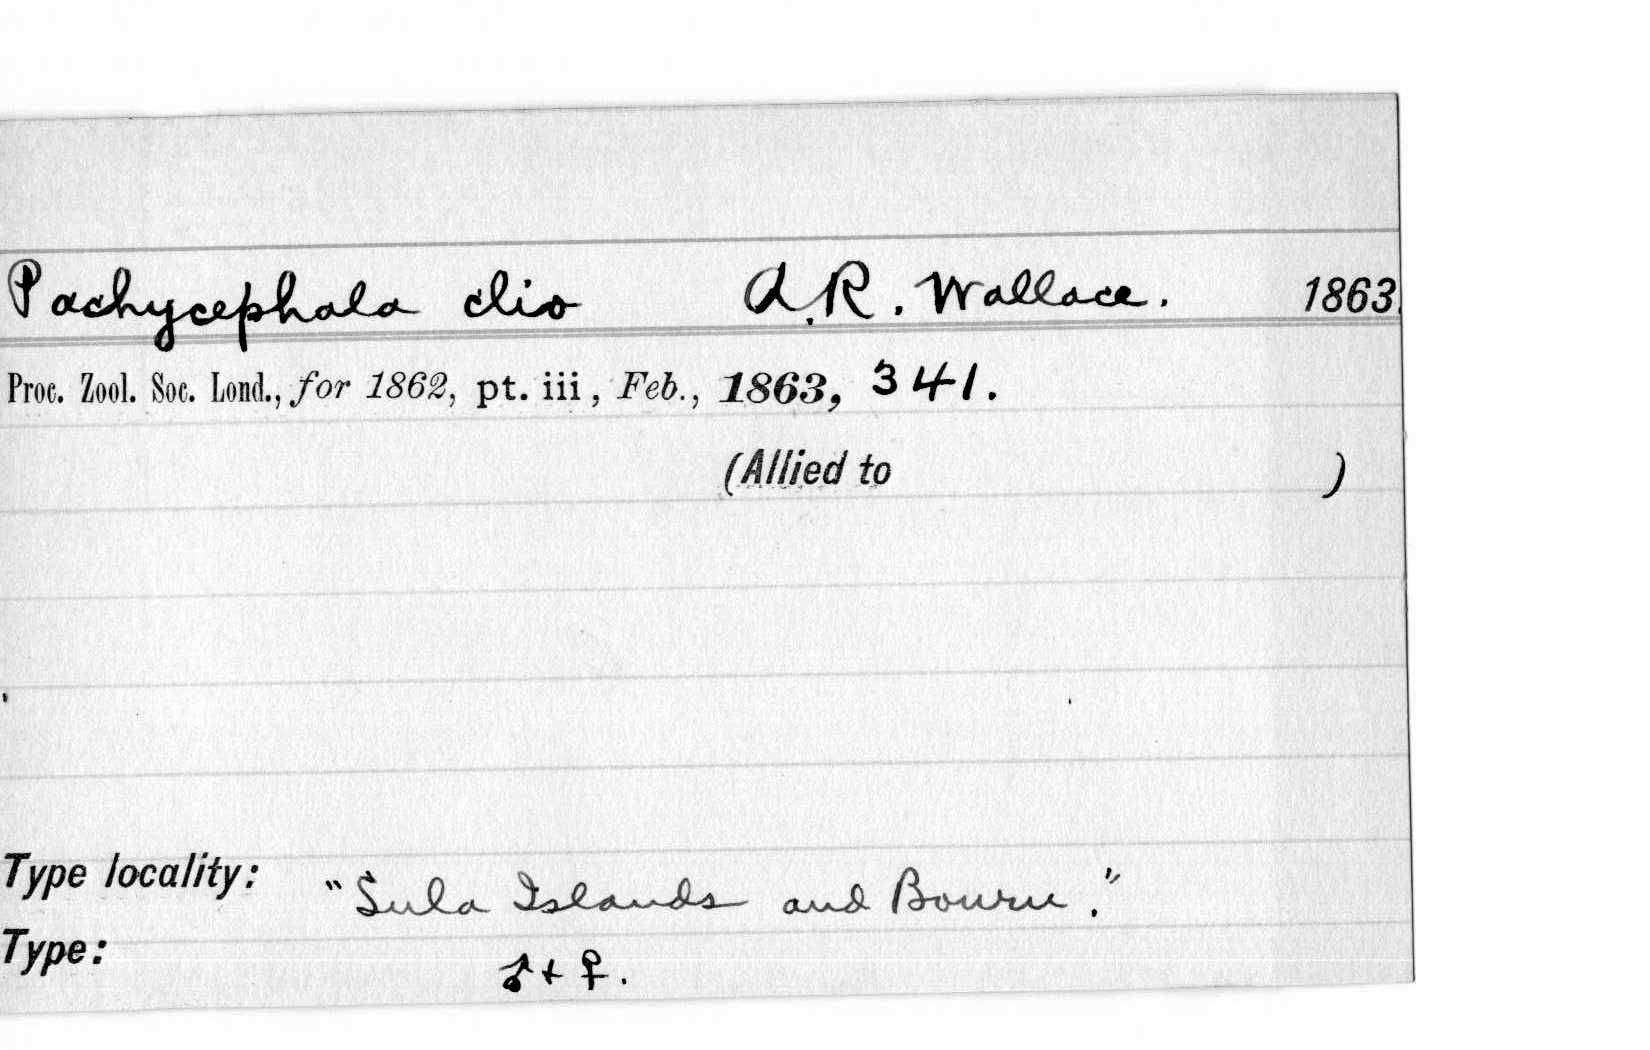 Pachycephala clio A.R. Wallace. 1863.
Proc. Zool. Soc. Lond., for 1862, pt. iii, Feb., 1863, 341.
(Allied to )
Type locality: "Sula Islands and Bouru."
Type: ♂ + ♀.